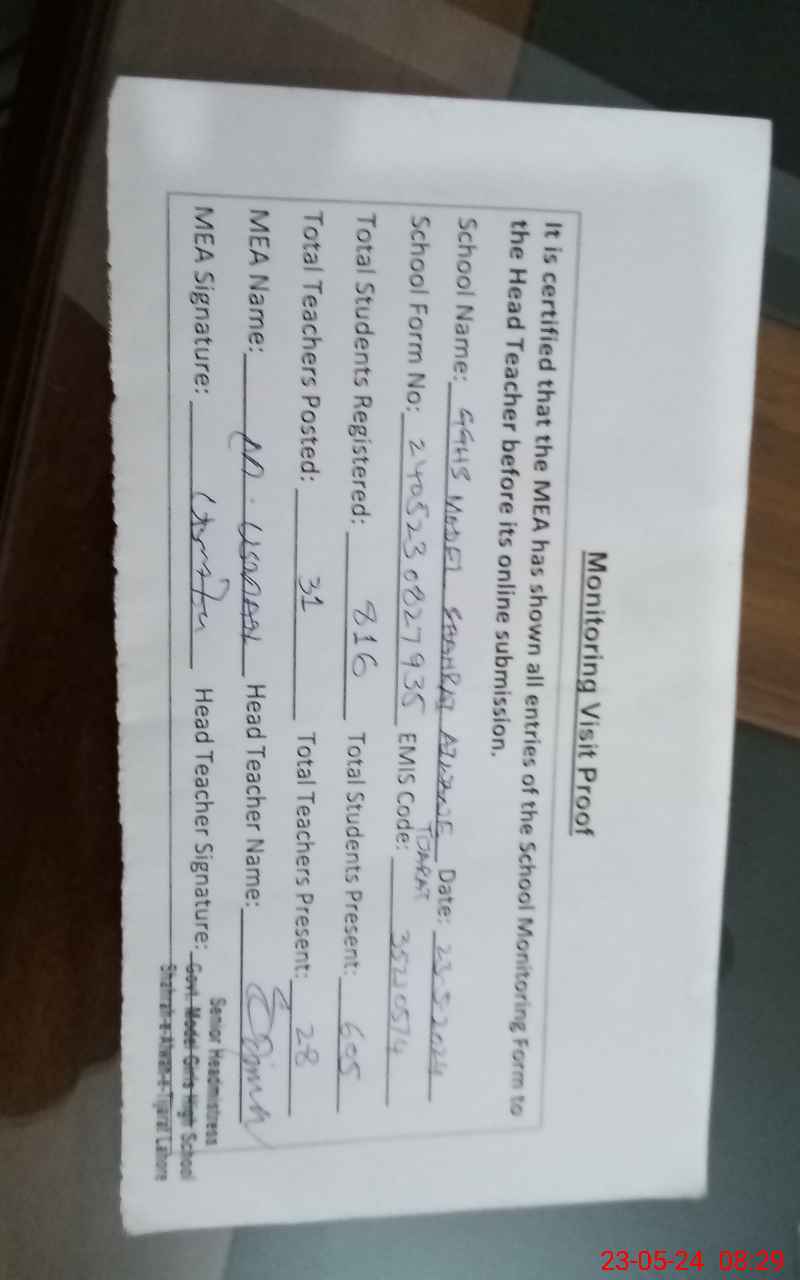 Monitoring Visit Proof
It is certified that the MEA has shown all entries of the School Monitoring Form to
the Head Teacher before its online submission.
School Name: GGHS MODEL SHAHRAH AIWANE Date: 23-5-2024
TIJARAT
School Form No: 240523082793S EMIS Code: 35220574
Total Students Registered: 816 Total Students Present: 605
Total Teachers Posted: 31 Total Teachers Present: 28
MEA Name: M. USMAAN Head Teacher Name:
MEA Signature: Head Teacher Signature:
Senior Headmistress
Govt. Model Girls High School
Shahrah-e-Aiwan-e-Tijarat Lahore
23-05-24 08:29